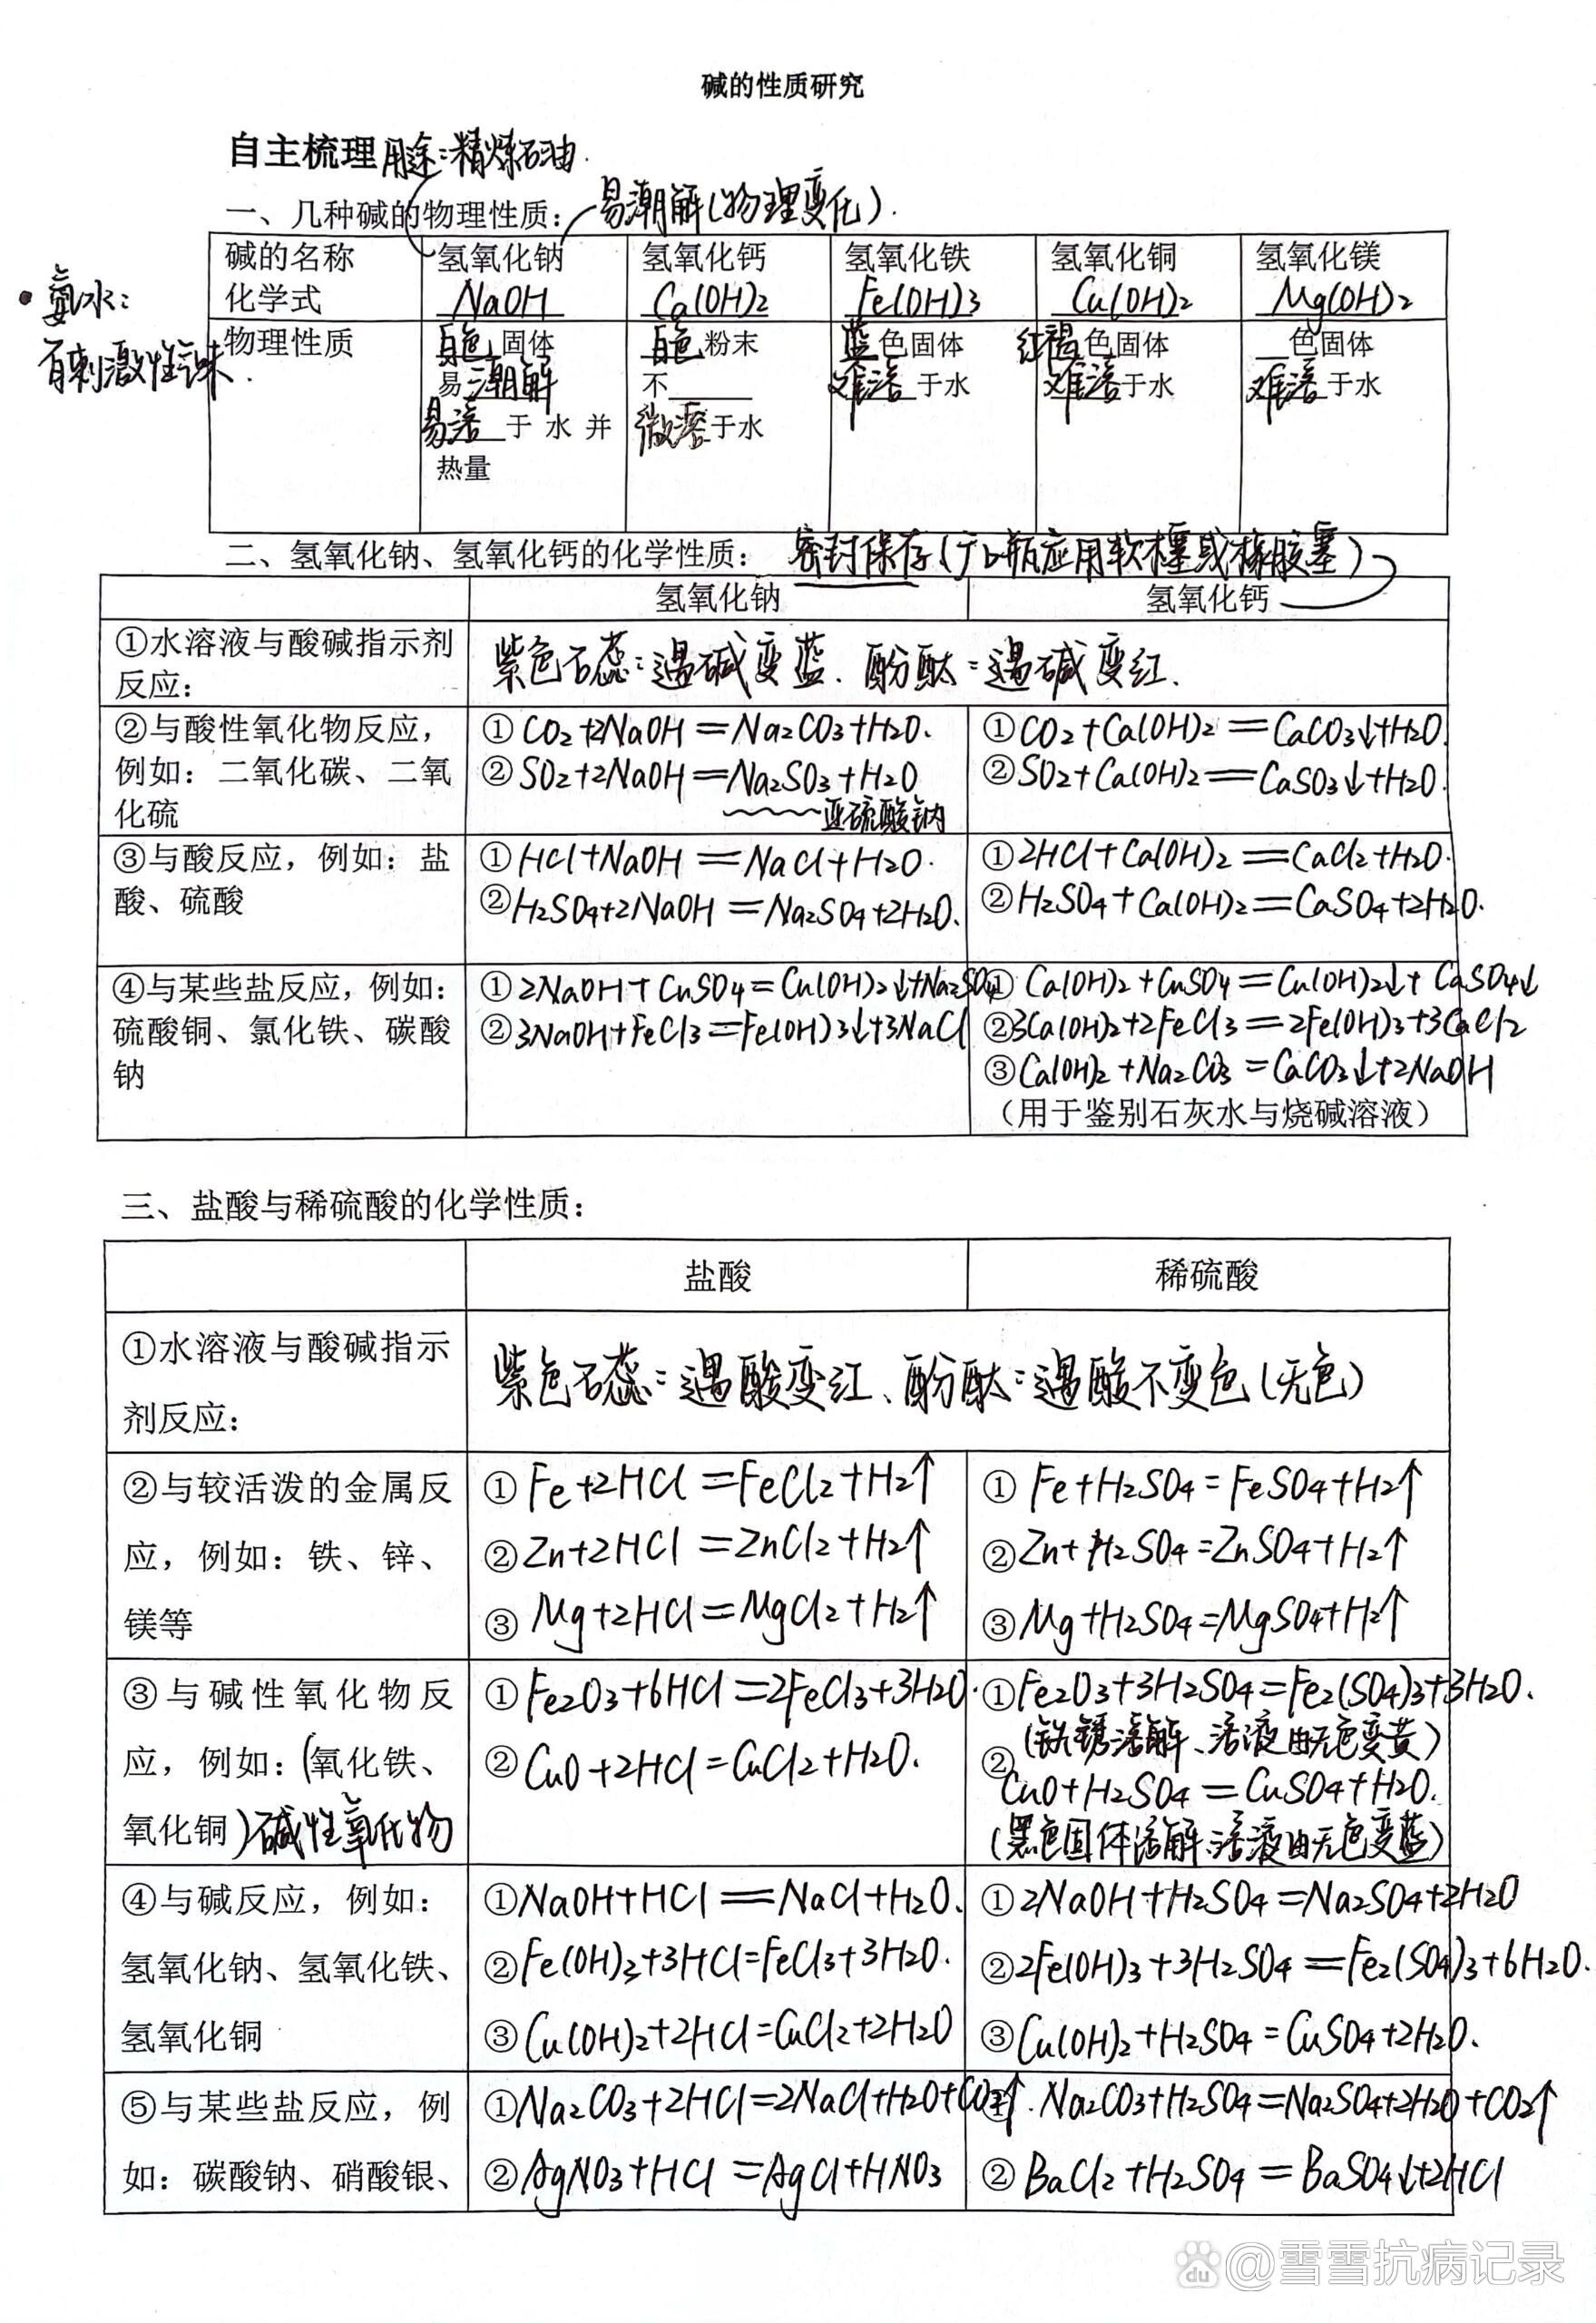 碱的性质研究
自主梳理 用途:精炼石油.
一、几种碱的物理性质: 易潮解(物理变化).
碱的名称 氢氧化钠 氢氧化钙 氢氧化铁 氢氧化铜 氢氧化镁
化学式 NaOH Ca(OH)₂ Fe(OH)₃ Cu(OH)₂ Mg(OH)₂
• 氨水:
有刺激性气味.
物理性质 白色固体 白色粉末 蓝色固体 红褐色固体 __色固体
易潮解 不______ 难溶于水 难溶于水 难溶于水
易溶于水并 微溶于水
热量
二、氢氧化钠、氢氧化钙的化学性质: 密封保存(广口瓶应用软木塞或橡胶塞)
氢氧化钠 氢氧化钙
①水溶液与酸碱指示剂
反应:
紫色石蕊:遇碱变蓝. 酚酞:遇碱变红.
②与酸性氧化物反应,
例如:二氧化碳、二氧
化硫
①CO₂+2NaOH=Na₂CO₃+H₂O.
②SO₂+2NaOH=Na₂SO₃+H₂O
亚硫酸钠
①CO₂+Ca(OH)₂=CaCO₃↓+H₂O.
②SO₂+Ca(OH)₂=CaSO₃↓+H₂O.
③与酸反应,例如:盐
酸、硫酸
①HCl+NaOH=NaCl+H₂O.
②H₂SO₄+2NaOH=Na₂SO₄+2H₂O.
①2HCl+Ca(OH)₂=CaCl₂+H₂O.
②H₂SO₄+Ca(OH)₂=CaSO₄+2H₂O.
④与某些盐反应,例如:
硫酸铜、氯化铁、碳酸
钠
①2NaOH+CuSO₄=Cu(OH)₂↓+Na₂SO₄
②3NaOH+FeCl₃=Fe(OH)₃↓+3NaCl
①Ca(OH)₂+CuSO₄=Cu(OH)₂↓+CaSO₄↓
②3Ca(OH)₂+2FeCl₃=2Fe(OH)₃+3CaCl₂
③Ca(OH)₂+Na₂CO₃=CaCO₃↓+2NaOH
(用于鉴别石灰水与烧碱溶液)
三、盐酸与稀硫酸的化学性质:
盐酸 稀硫酸
①水溶液与酸碱指示
剂反应:
紫色石蕊:遇酸变红、酚酞:遇酸不变色(无色)
②与较活泼的金属反
应,例如:铁、锌、
镁等
①Fe+2HCl=FeCl₂+H₂↑
②Zn+2HCl=ZnCl₂+H₂↑
③Mg+2HCl=MgCl₂+H₂↑
①Fe+H₂SO₄=FeSO₄+H₂↑
②Zn+H₂SO₄=ZnSO₄+H₂↑
③Mg+H₂SO₄=MgSO₄+H₂↑
③与碱性氧化物反
应,例如:(氧化铁、
氧化铜)碱性氧化物
①Fe₂O₃+6HCl=2FeCl₃+3H₂O.
②CuO+2HCl=CuCl₂+H₂O.
①Fe₂O₃+3H₂SO₄=Fe₂(SO₄)₃+3H₂O.
(铁锈溶解、溶液由无色变黄)
②CuO+H₂SO₄=CuSO₄+H₂O.
(黑色固体溶解、溶液由无色变蓝)
④与碱反应,例如:
氢氧化钠、氢氧化铁、
氢氧化铜
①NaOH+HCl=NaCl+H₂O.
②Fe(OH)₃+3HCl=FeCl₃+3H₂O.
③Cu(OH)₂+2HCl=CuCl₂+2H₂O
①2NaOH+H₂SO₄=Na₂SO₄+2H₂O
②2Fe(OH)₃+3H₂SO₄=Fe₂(SO₄)₃+6H₂O.
③Cu(OH)₂+H₂SO₄=CuSO₄+2H₂O.
⑤与某些盐反应,例
如:碳酸钠、硝酸银、
①Na₂CO₃+2HCl=2NaCl+H₂O+CO₂↑
②AgNO₃+HCl=AgCl+HNO₃
①.Na₂CO₃+H₂SO₄=Na₂SO₄+2H₂O+CO₂↑
②BaCl₂+H₂SO₄=BaSO₄↓+2HCl
du @雪雪抗病记录